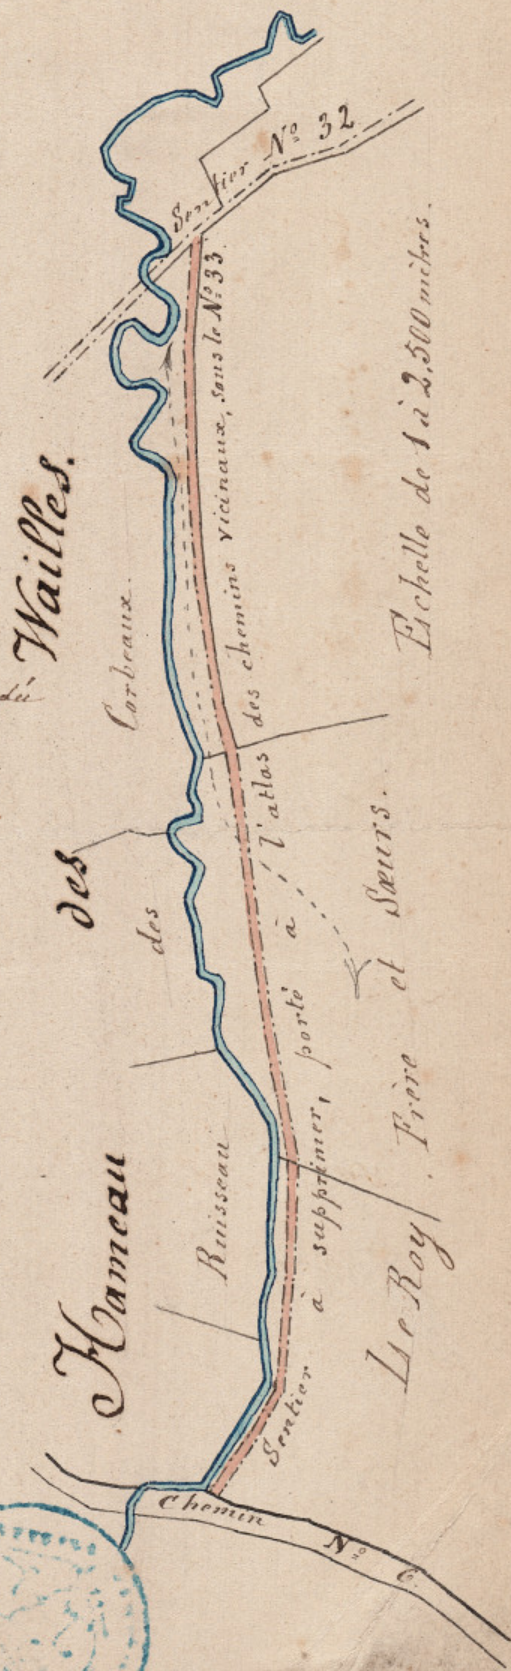 Hameau des Wailles.
Ruisseau des Corbeaux.
Sentier No 32
Sentier à supprimer, porté à l'atlas des chemins vicinaux, sous le No 33.
Le Roy Frère et Sœurs.
Echelle de 1 à 2,500 mètres.
Chemin No 6.